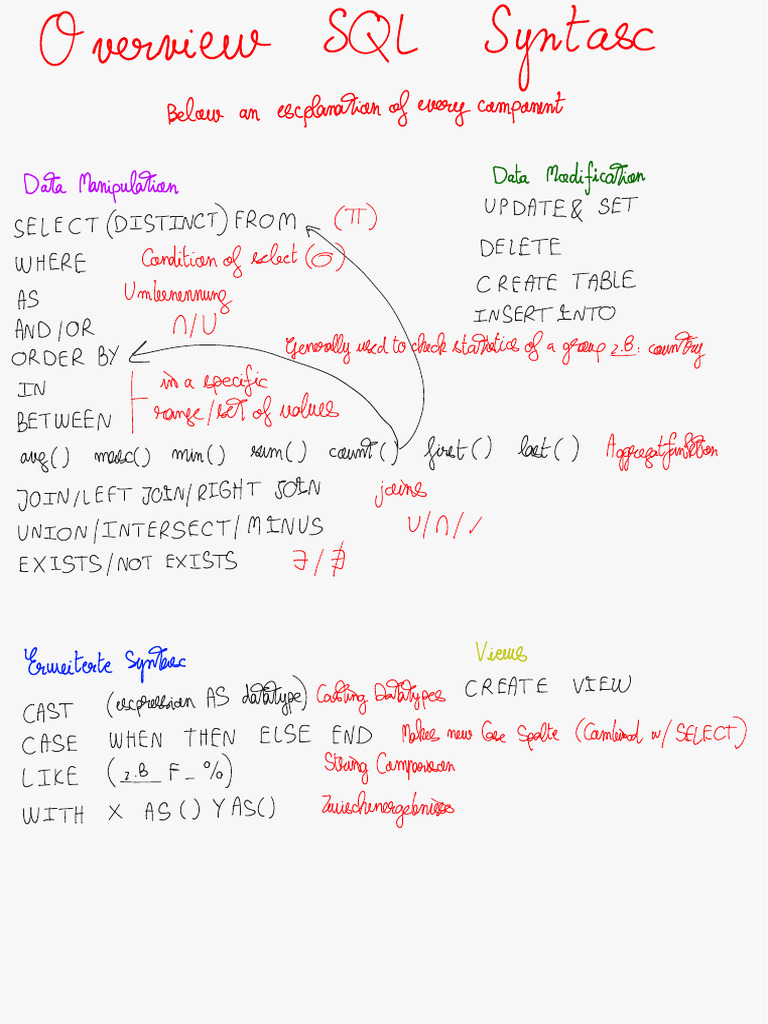 Overview SQL Syntax
Below an explanation of every component
Data Manipulation
SELECT (DISTINCT) FROM (π)
WHERE Condition of select (σ)
AS Umbenennung
AND/OR ∩/∪
ORDER BY
Generally used to check statistics of a group z.B: country
IN in a specific
BETWEEN range/set of values
avg() max() min() sum() count() first() last() Aggregatfunktion
JOIN/LEFT JOIN/RIGHT JOIN joins
UNION/INTERSECT/MINUS ∪/∩/
EXISTS/NOT EXISTS ∃/∄
Data Modification
UPDATE & SET
DELETE
CREATE TABLE
INSERT INTO
Erweiterte Syntax
CAST (expression AS datatype) Casting Datatypes
CASE WHEN THEN ELSE END Makes new Case Spalte (Combined w/ SELECT)
LIKE (z.B F_%) String Comparison
WITH X AS() Y AS() Zwischenergebnisse
Views
CREATE VIEW